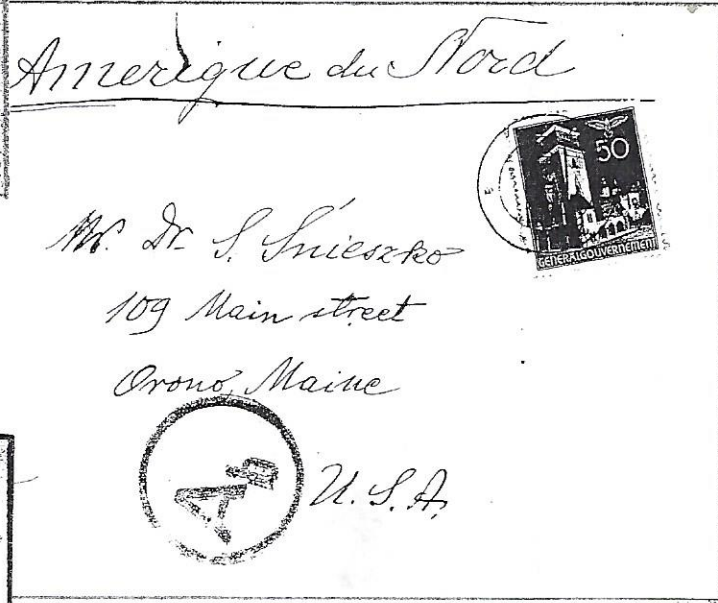 Amerique du Nord
50
GENERALGOUVERNEMENT
Mr. Dr. S. Śnieszko
109 Main street
Orono, Maine
U.S.A.